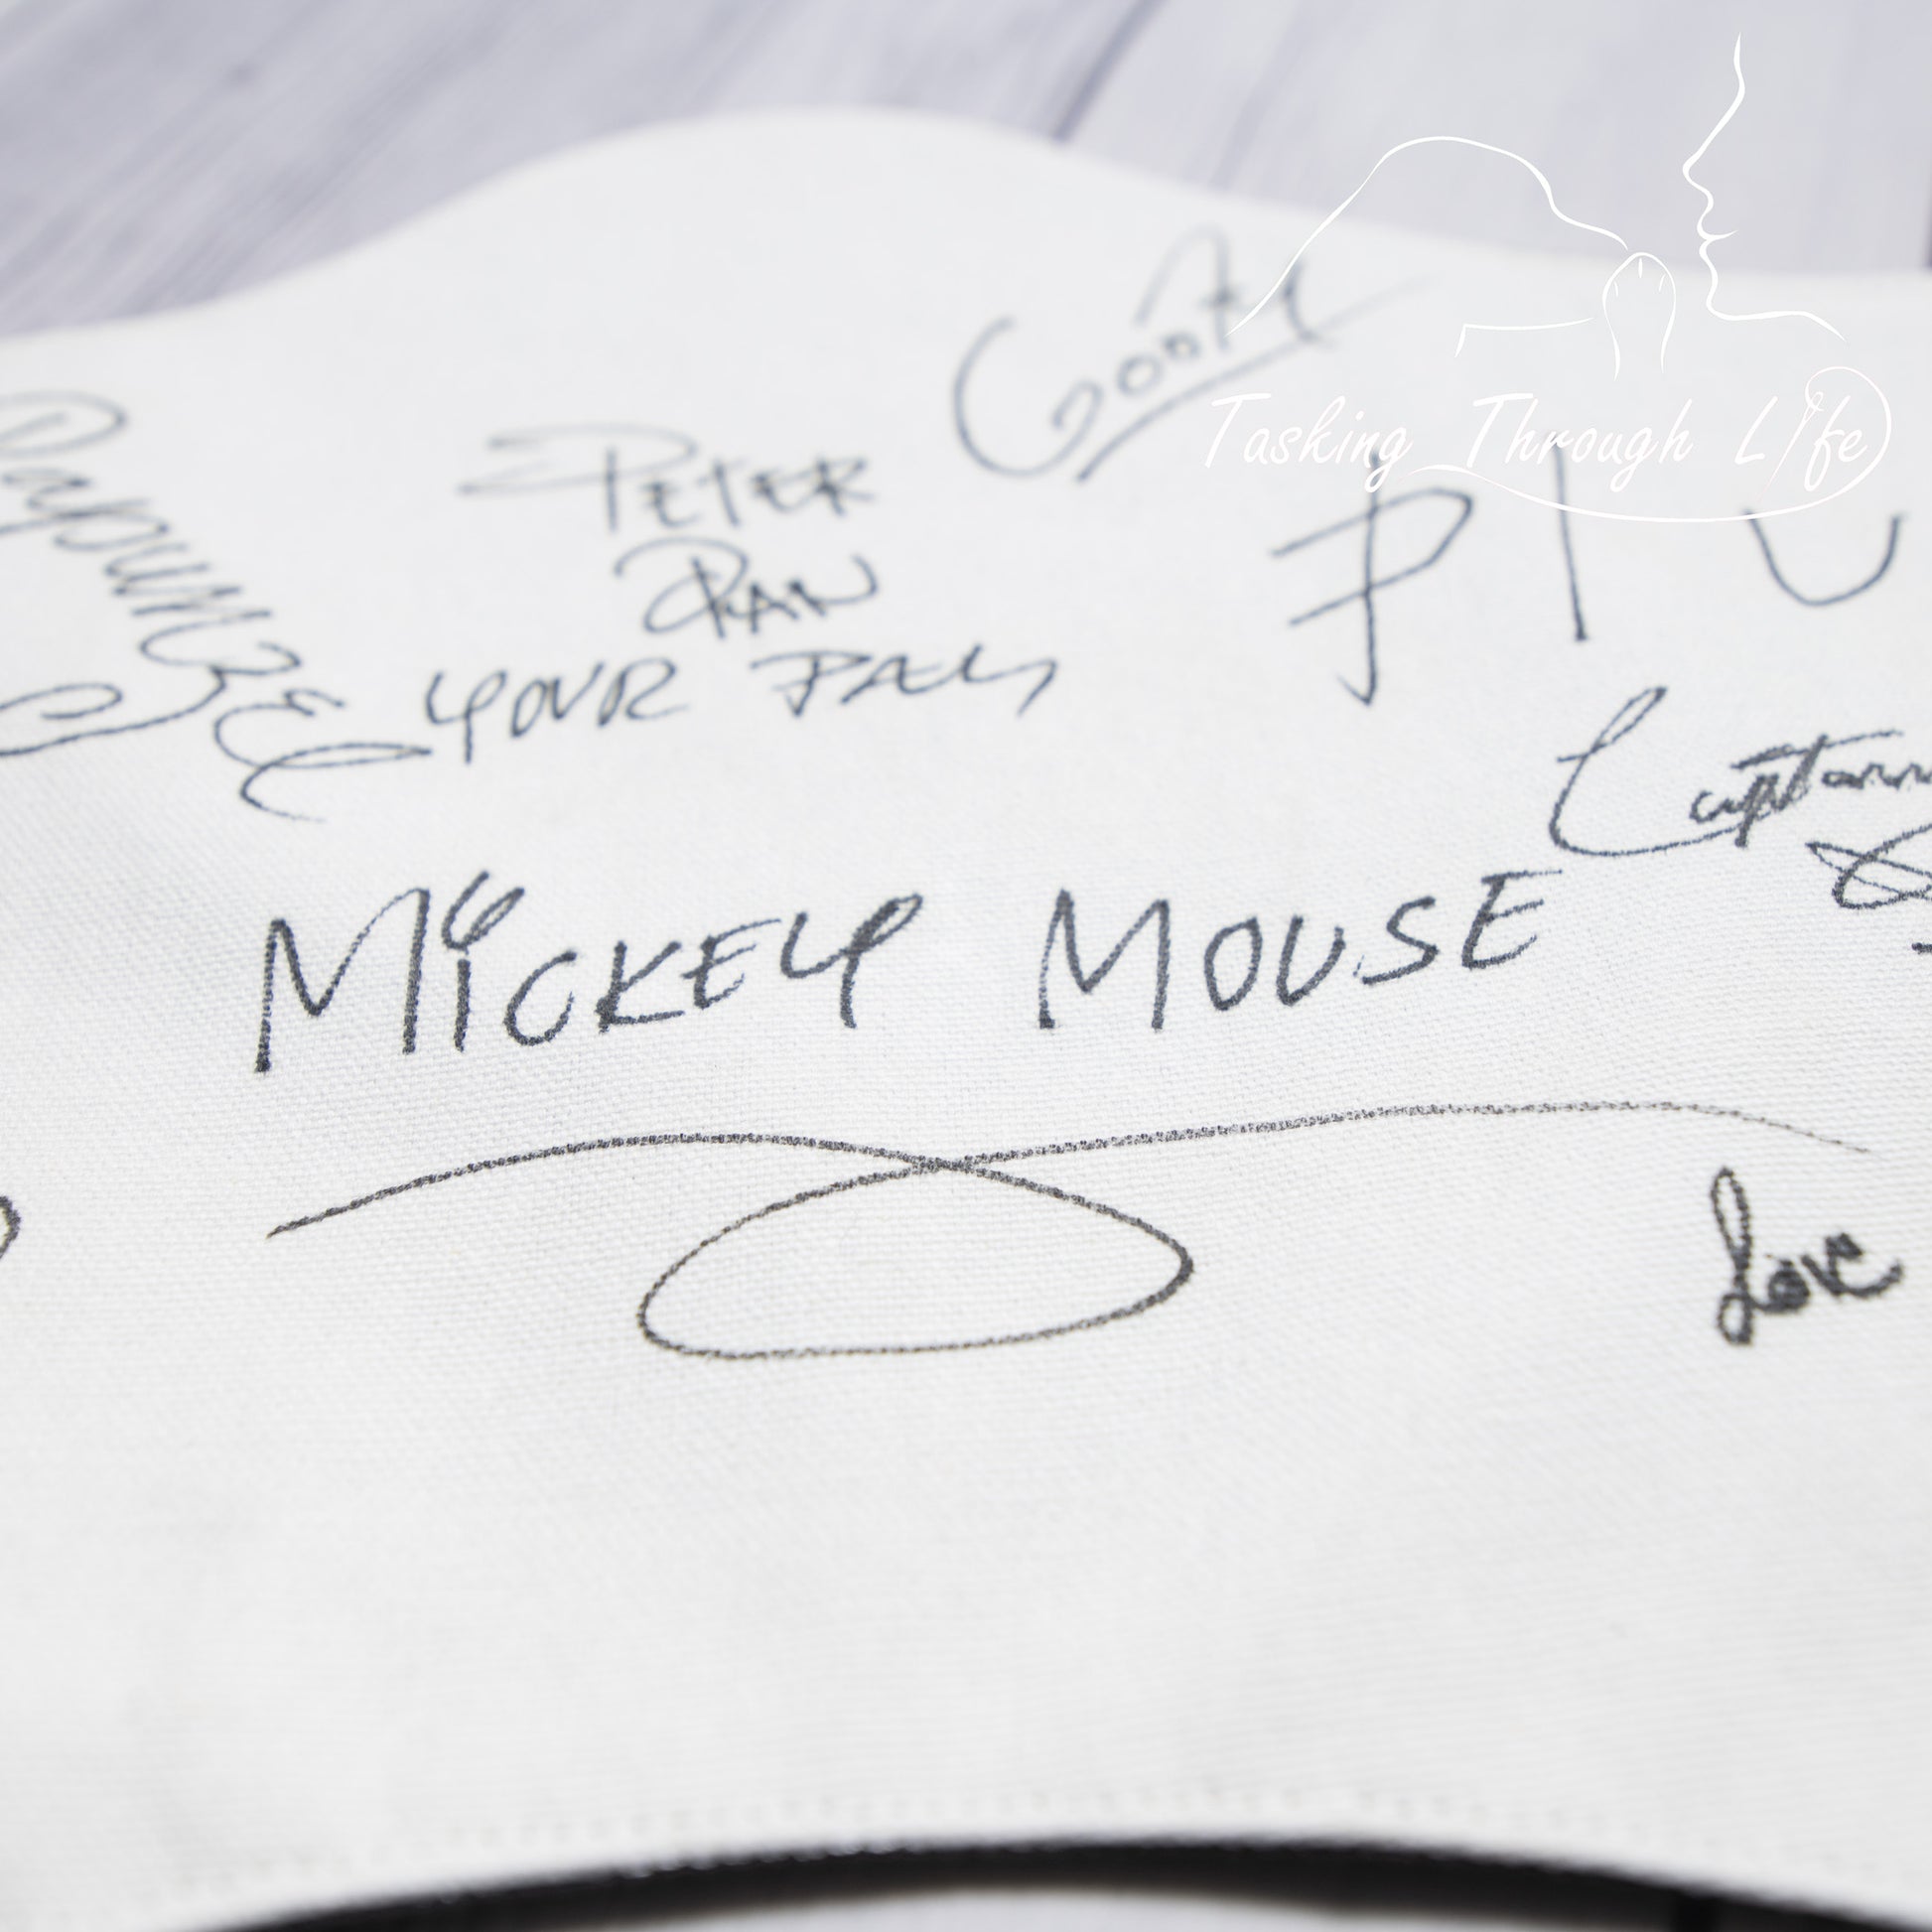 Goofy
Tasking Through Life
Rapunzel
PETER
PAN
YOUR PAL,
MiCKEY MOUSE
Love